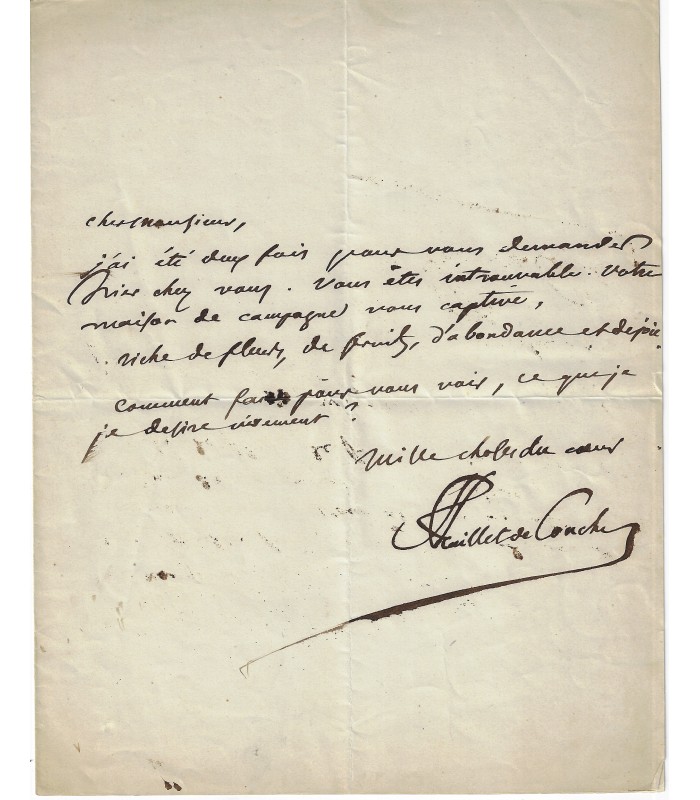 cher monsieur,
j'ai été deux fois pour vous demander
hier chez vous. Vous êtes introuvable. Votre
maison de campagne vous captive,
riche de fleurs, de fruits, d'abondance et de joie
comment faire pour vous voir, ce que je
je desire vivement ?
Mille choses du cœur
Feuillet de Conches